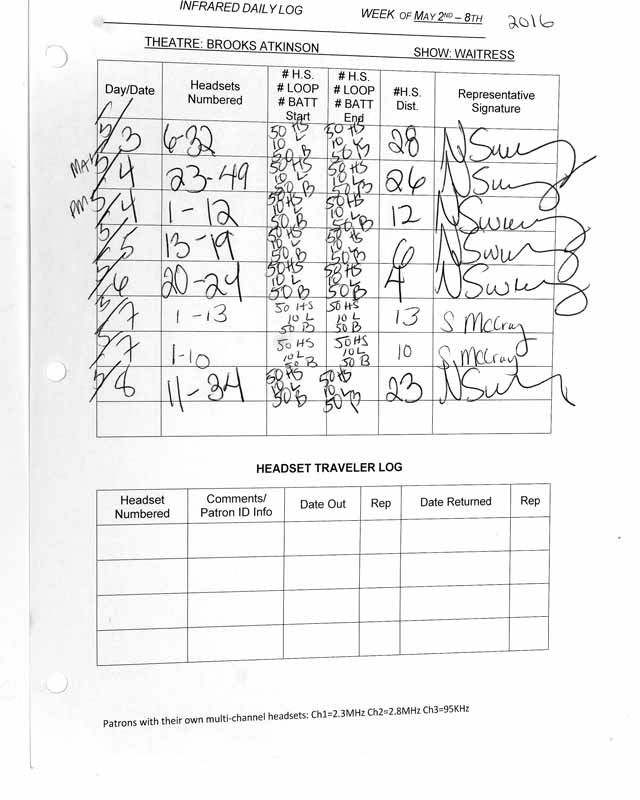 INFRARED DAILY LOG WEEK OF MAY 2ND – 8TH 2016
THEATRE: BROOKS ATKINSON SHOW: WAITRESS
Day/Date Headsets Numbered # H.S. # LOOP # BATT Start # H.S. # LOOP # BATT End #H.S. Dist. Representative Signature
5/3 6-32 50 HS 10 L 50 B 50 HS 10 L 50 B 28
MAT 5/4 23-49 50 HS 10 L 50 B 50 HS 10 L 50 B 26
PM 5/4 1-12 50 HS 10 L 50 B 50 HS 10 L 50 B 12
5/5 13-19 50 HS 10 L 50 B 50 HS 10 L 50 B 6
5/6 20-24 50 HS 10 L 50 B 50 HS 10 L 50 B 4
5/7 1-13 50 HS 10 L 50 B 50 HS 10 L 50 B 13 S McCray
5/7 1-10 50 HS 10 L 50 B 50 HS 10 L 50 B 10 S McCray
5/8 11-34 50 HS 10 L 50 B 50 HS 10 L 50 B 23
HEADSET TRAVELER LOG
Headset Numbered Comments/ Patron ID Info Date Out Rep Date Returned Rep
Patrons with their own multi-channel headsets: Ch1=2.3MHz Ch2=2.8MHz Ch3=95KHz